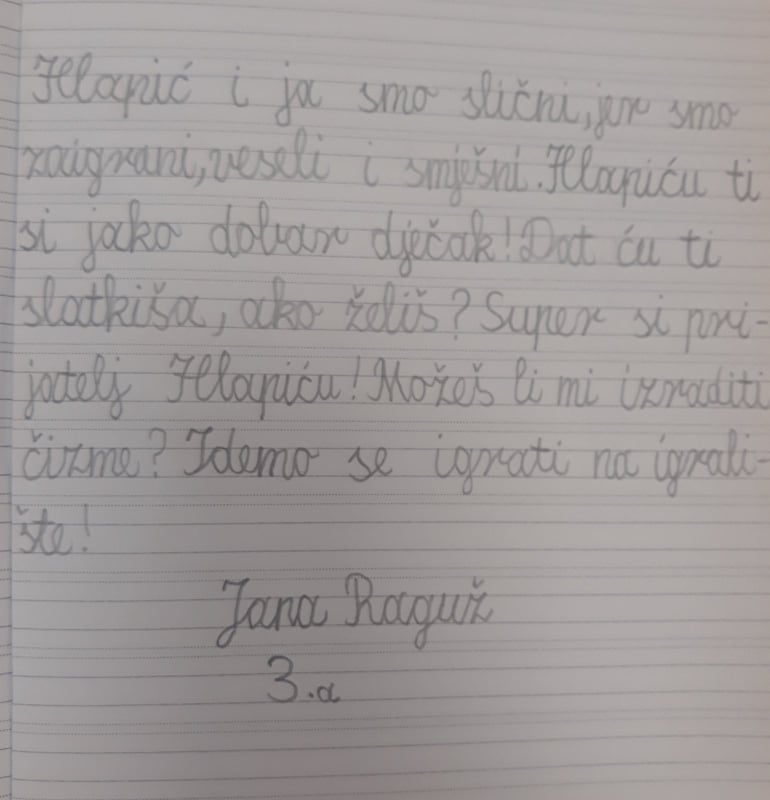 Hlapić i ja smo slični, jer smo
zaigrani, veseli i smješni. Hlapiću ti
si jako dobar dječak! Dat ću ti
slatkiša, ako želiš? Super si pri-
jatelj Hlapiću! Možeš li mi izraditi
čizme? Idemo se igrati na igrali-
šte!
Jana Raguž
3.a